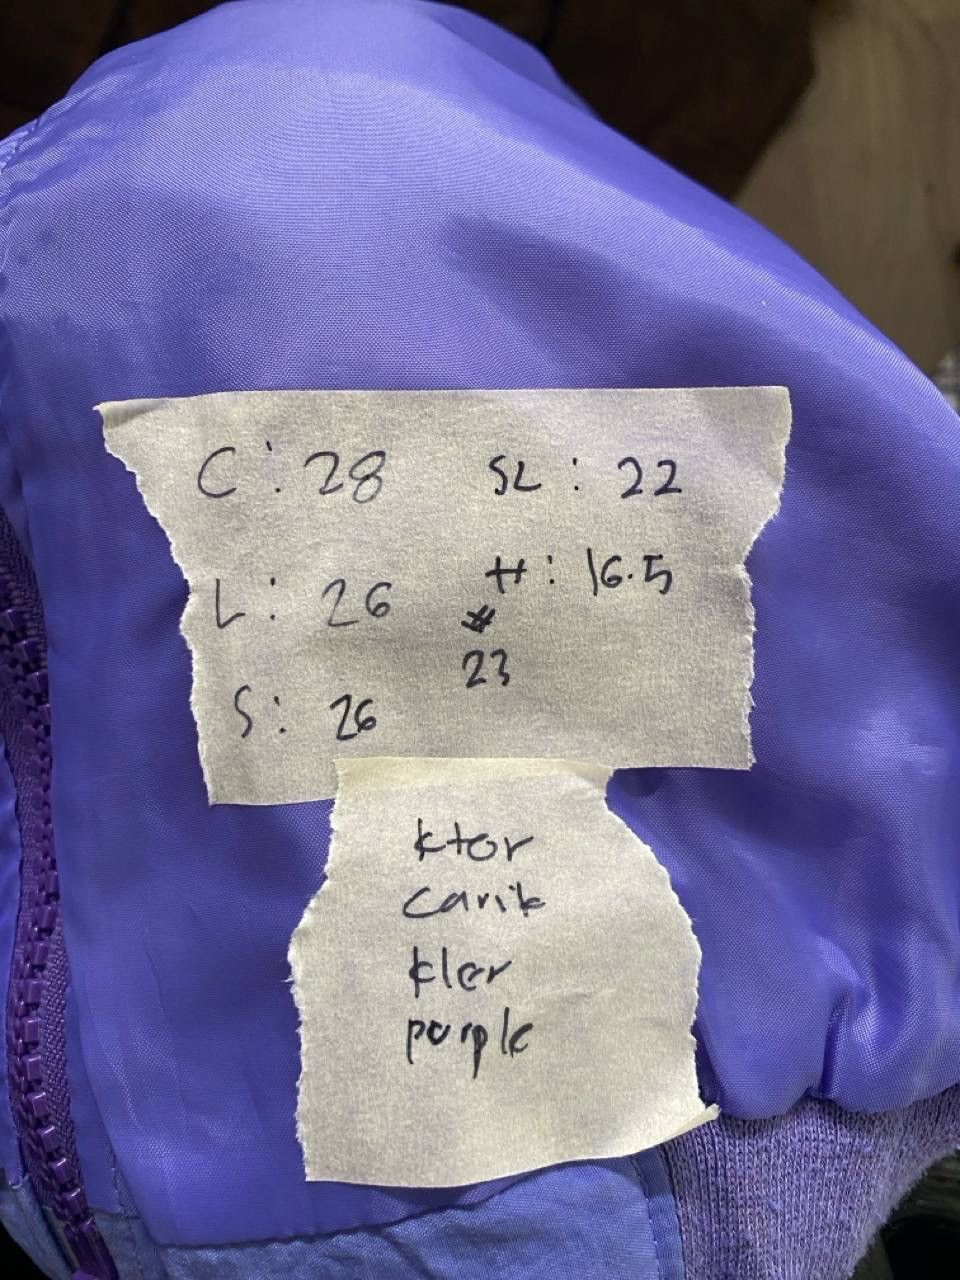 C: 28 SL: 22
L: 26 H: 16.5
#
23
S: 26
ktor
carik
kler
purple